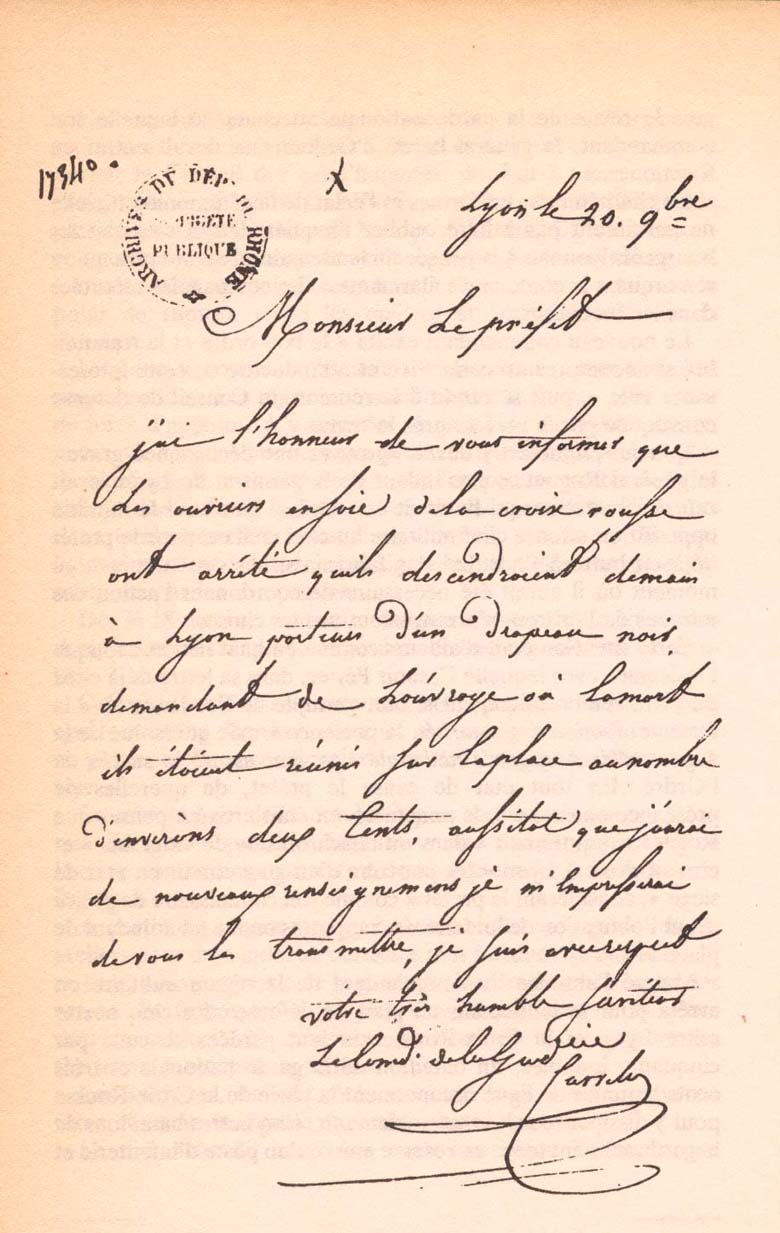 17340.
ARCHIVES DU DÉP. DU RHÔNE
PROPRIÉTÉ
PUBLIQUE
Lyon le 20. 9bre
Monsieur Le préfet
j'ai l'honneur de vous informer que
Les ouvriers en soie de la croix rousse
ont arrêté qu'ils descendroient demain
à Lyon porteurs d'un drapeau noir,
demandant de L'ouvrage où la mort
ils étoient réunis sur la place au nombre
d'environs deux Cents, aussitot que j'aurai
de nouveaux renseignemens je m'Empresserai
de vous les transmettre, je suis avec respect
votre très humble serviteur
Le Comdt. de la Gend